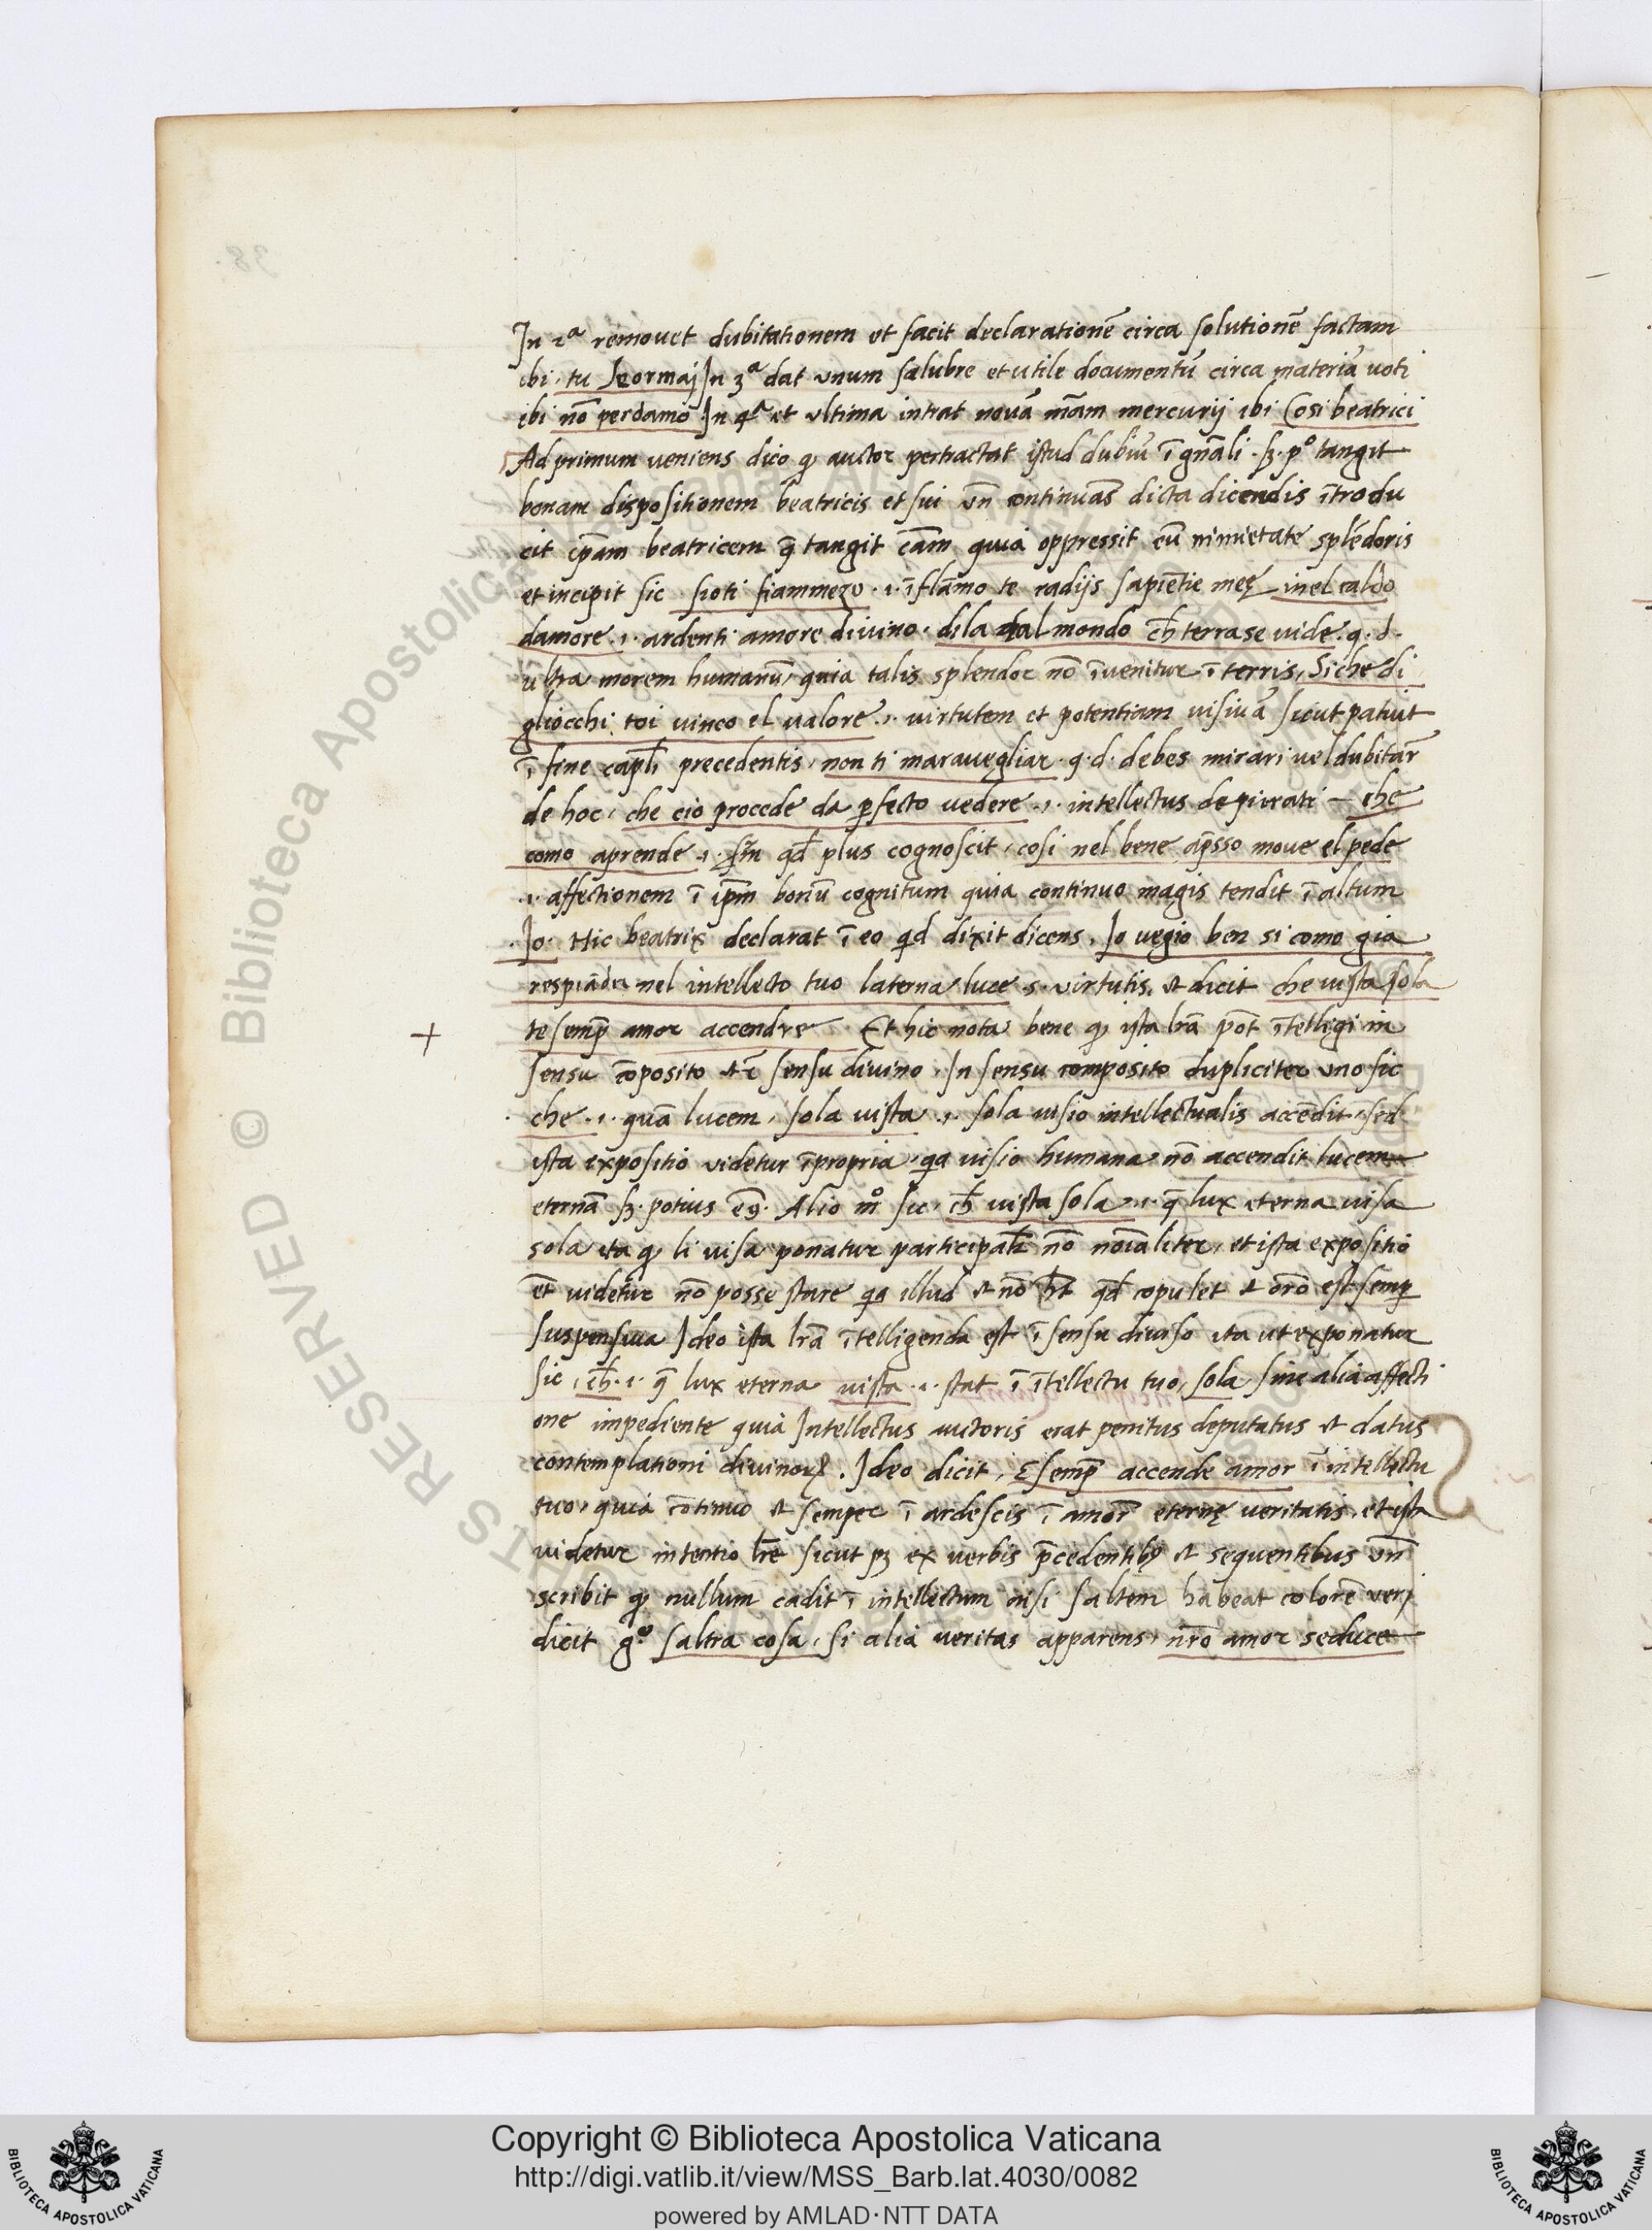 In 2ª remouet dubitationem et facit declarationē circa solutionē factam
ibi, tu Leormaj In 3ª dat vnum salubre et utile documentū circa materiā uoti
ibi nō perdamo In qª et vltima intrat nouā mām mercurij ibi Cosi beatrici
Ad primum ueniens dico ꝙ auctor pertractat istud dubiū ī gnāli. sꝫ. pº tangit
bonam dispositionem beatricis et sui vn̄ continuās dicta dicendis ītrodu
cit ip̄am beatricem q̄ tangit cām quia oppressit eū nimietate splēdoris
et incipit sic sioti fiammezo .i. īflāmo te radijs sapiētie meę inel caldo
damore .i. ardenti amore diuino. dila dal mondo ch̄ terra se uide. q. d.
ultra morem humanū quia talis splendor nō īuenitur ī terris, Siche di
gliocchi toi uinco el ualore .i. uirtutem et potentiam uisiuā sicut patuit
ī fine capl̄i precedentis, non ti marauegliar. q. d. debes mirari uel dubitar̄
de hoc, che cio procede da ꝑfecto uedere .i. intellectus depurati – che
como aprende .i. scd̄m qd̄ plus cognoscit, cosi nel bene ap̄sso moue el pede
.i. affectionem ī ip̄m bonū cognitum quia continuo magis tendit ī altum
.Jo. Hic beatrix declarat ī eo qd̄ dixit dicens, Jo uegio ben si como gia
respiāder nel intellecto tuo laterna luce .s. virtutis, et dicit che uista sola
te semp̄ amor accendre Et hic nota bene ꝙ ista lr̄a pōt ītelligi in
sensu cōposito et ī sensu diuino. In sensu composito dupliciter vno sic
che .i. quā lucem, sola uista .i. sola uisio intellectualis accēdit, sed
ista expositio videtur īpropria, qa uisio humana nō accendit lucem
eternā sꝫ. potius eꝯ. Alio mº sic, ch̄ uista sola .i. q̄ lux eterna uisa
sola ita ꝙ li uisa ponatur participalr̄ nō noīaliter, et ista expositio
et̄ uidetur nō posse stare qa illud et nō ht̄ qd̄ copulet et orō est semꝑ
suspensiua Ideo ista lr̄a ītelligenda est ī sensu diuiso ita ut exponatur
sic, ch̄ .i. q̄ lux eterna uista .i. stat ī ītellectu tuo, sola, sine alia affecti
one impediente quia Intellectus auctoris erat penitus deputatus et datus
contemplationi diuinoꝝ. Ideo dicit, E semp̄ accende amor ī intellectu
tuo, quia cōtinuo et semper ī ardescis ī amor̄ eternę ueritatis, et ista
videtur intentio lr̄e sicut pꝫ ex uerbis p̄cedentibꝯ et sequentibus vn̄
scribit ꝙ nullum cadit ī intellectum nisi saltem habeat colorē veri
dicit gº saltra cosa, si alia ueritas apparens, nr̄o amor seduce